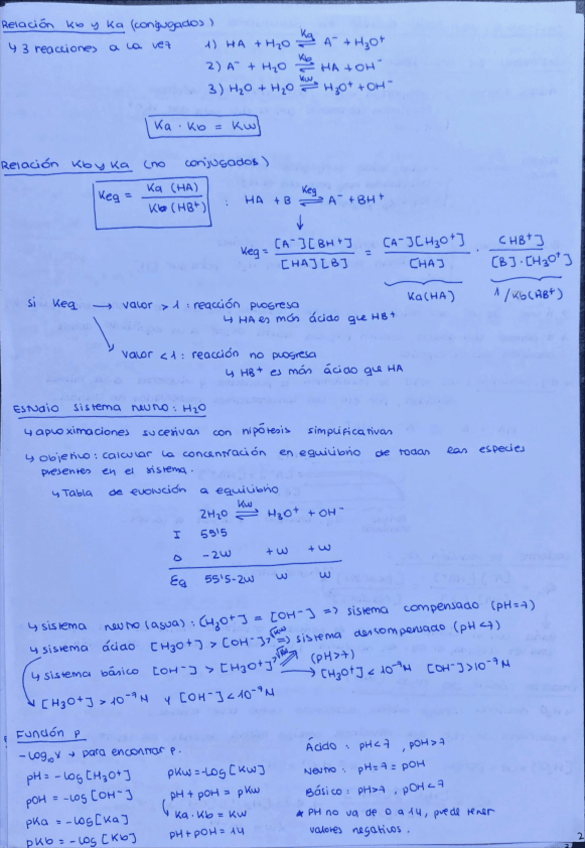 Relación Kb y Ka (conjugados)
↳ 3 reacciones a la vez 1) HA + H2O ⇌ A⁻ + H3O⁺ Ka
2) A⁻ + H2O ⇌ HA + OH⁻ Kb
3) H2O + H2O ⇌ H3O⁺ + OH⁻ Kw
Ka · Kb = Kw
Relación Kb y Ka (no conjugados)
Keq = Ka (HA) / Kb (HB⁺) : HA + B ⇌ A⁻ + BH⁺ Keq
Keq = [A⁻][BH⁺] / [HA][B] = [A⁻][H3O⁺] / [HA] · [HB⁺] / [B]·[H3O⁺]
Ka(HA) 1/Kb(HB⁺)
si Keq → valor > 1 : reacción progresa
↳ HA es más ácido que HB⁺
↘ valor < 1 : reacción no progresa
↳ HB⁺ es más ácido que HA
Estudio sistema neutro: H2O
↳ aproximaciones sucesivas con hipótesis simplificativas
↳ objetivo: calcular la concentración en equilibrio de todas las especies
presentes en el sistema.
↳ Tabla de evolución a equilibrio
2H2O ⇌ H3O⁺ + OH⁻ Kw
I 55'5
Δ -2w +w +w
Eq 55'5-2w w w
↳ sistema neutro (agua): [H3O⁺] = [OH⁻] => sistema compensado (pH=7)
↳ sistema ácido [H3O⁺] > [OH⁻], √Kw => sistema descompensado (pH<7)
↳ sistema básico [OH⁻] > [H3O⁺], √Kw (pH>7) → [H3O⁺] < 10⁻⁷ M [OH⁻] > 10⁻⁷ M
[H3O⁺] > 10⁻⁷ M y [OH⁻] < 10⁻⁷ M
Función p
-log₁₀ x → para encontrar p. Ácido : pH<7 , pOH>7
pH = -log [H3O⁺] pKw = -log [Kw] Neutro : pH=7=pOH
pOH = -log [OH⁻] pH + pOH = pKw Básico : pH>7 , pOH<7
pKa = -log [Ka] Ka · Kb = Kw * PH no va de 0 a 14, puede tener
pKb = -log [Kb] pH+pOH = 14 valores negativos.
2